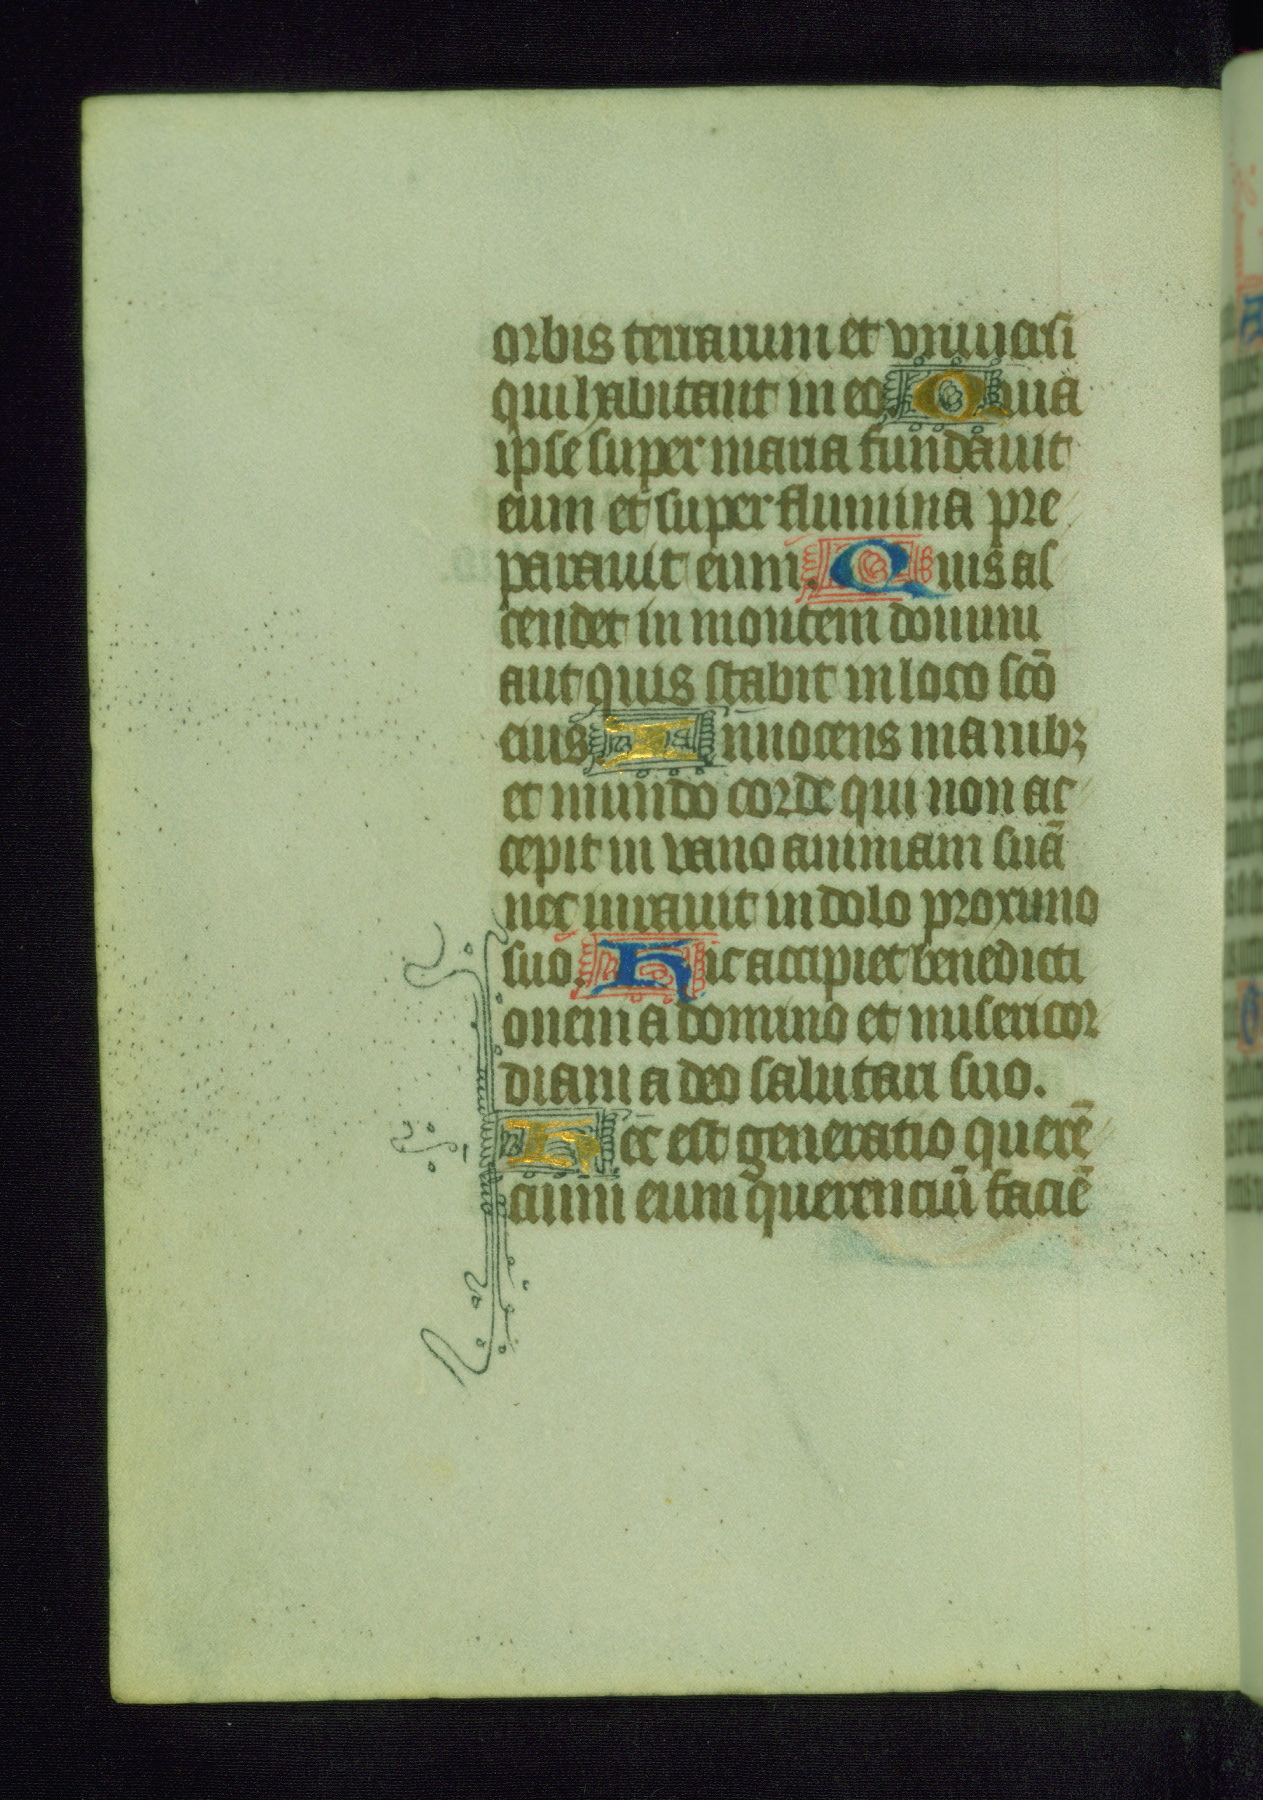 orbis terrarum et vniuersi
qui habitant in eo. Quia
ipse super maria fundauit
eum et super flumina pre
parauit eum. Quis as
cendet in montem domini
aut quis stabit in loco scō
eius. Innocens manibꝫ
et mundo corde qui non ac
cepit in vano animam suā
nec iurauit in dolo proximo
suo. Hic accipiet benedicti
onem a domino et misericor
diam a deo salutari suo.
Hec est generatio querē
cium eum querenciū faciē